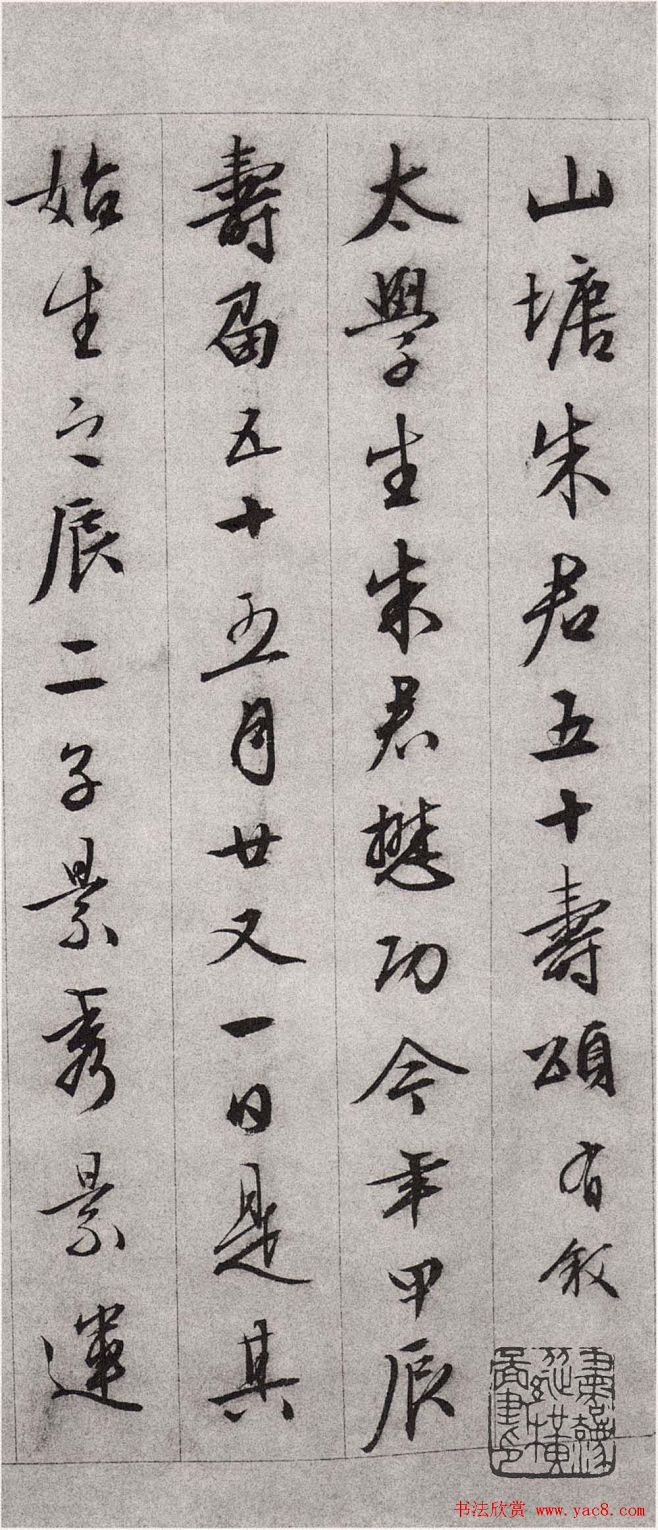 山塘朱君五十壽頌有敘
太學生朱君懋功今年甲辰
壽届五十五月廿又一日是其
始生之辰二子景秀景運
书法欣赏 www.yac8.com